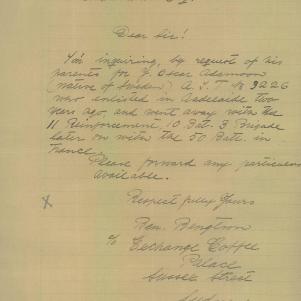 Dear Sir!
I'm inquiring, by request of his
parents for J. Oscar Adamson
(native of Sweden) A.I.F. No 3226
who enlisted in Aadelaide two
years ago, and went away with the
11 Reinforcement 10 Bat. 3 Brigade
later on with the 50 Batt. in
France.
Please forward any particulars
available.
Respectfully Yours
X
Ben. Bengtson
c/o Exchange Coffee
Palace
Sussex Street